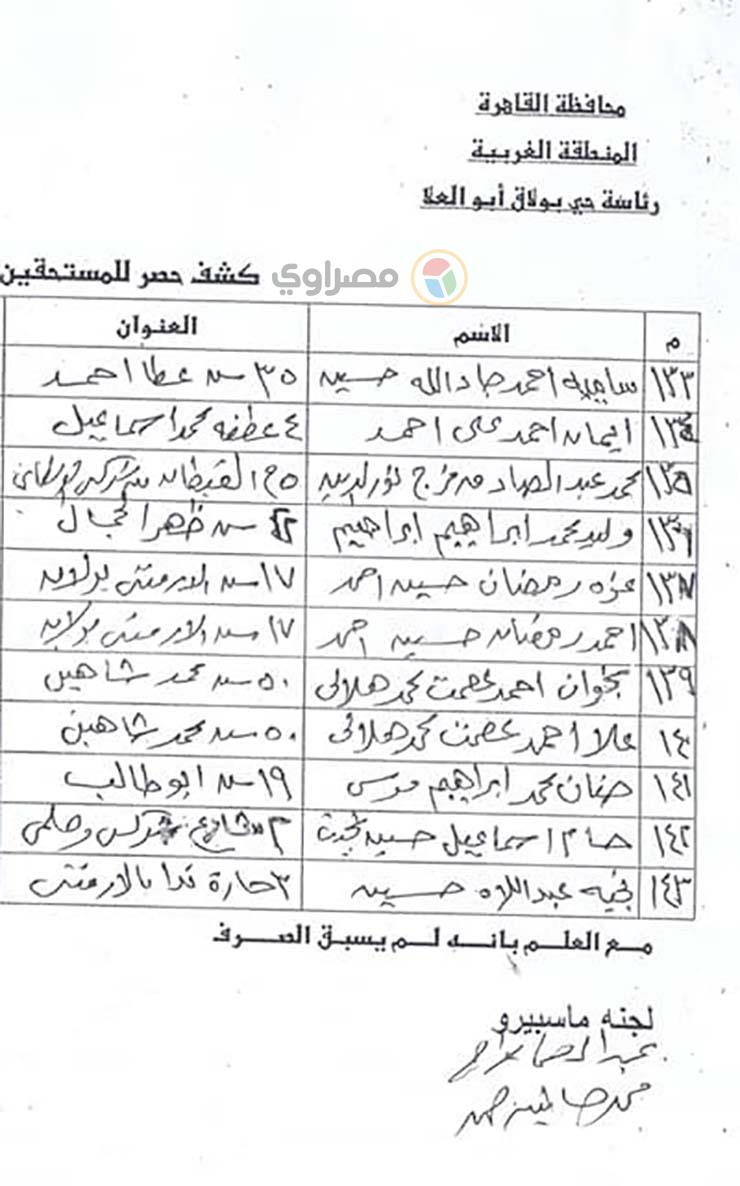 محافظة القاهرة
المنطقة الغربية
رئاسة حي بولاق أبو العلا
كشف حصر للمستحقين
مصراوي
م الاسم العنوان
١٣٣ سامية احمد جاد الله حسين ٣٥ ش عطا احمد
١٣٤ ايمان احمد على احمد ٤ عطفه محمد اسماعيل
١٣٥ محمد عبد الصادق فرج نور الدين ٥ ح القبطان
١٣٦ وليد محمد ابراهيم ابراهيم ش ظهر الجمال
١٣٧ عزه رمضان حسين احمد ١٧ ش الارمنتى بولاق
١٣٨ احمد رمضان حسين احمد ١٧ ش الارمنتى بولاق
١٣٩ احمد عصمت محمد هلالى ٥٠ ش محمد شاهين
١٤٠ علا احمد عصمت محمد هلالى ٥٠ ش محمد شاهين
١٤١ حنان محمد ابراهيم موسى ١٩ ش ابو طالب
١٤٢ اسماعيل حسين بخيت ٣ شارع شركس وحلمى
١٤٣ عبد اللاه حسين ٣ حارة ندا بالارمنتى
مع العلم بانه لم يسبق الصرف
لجنه ماسبيرو